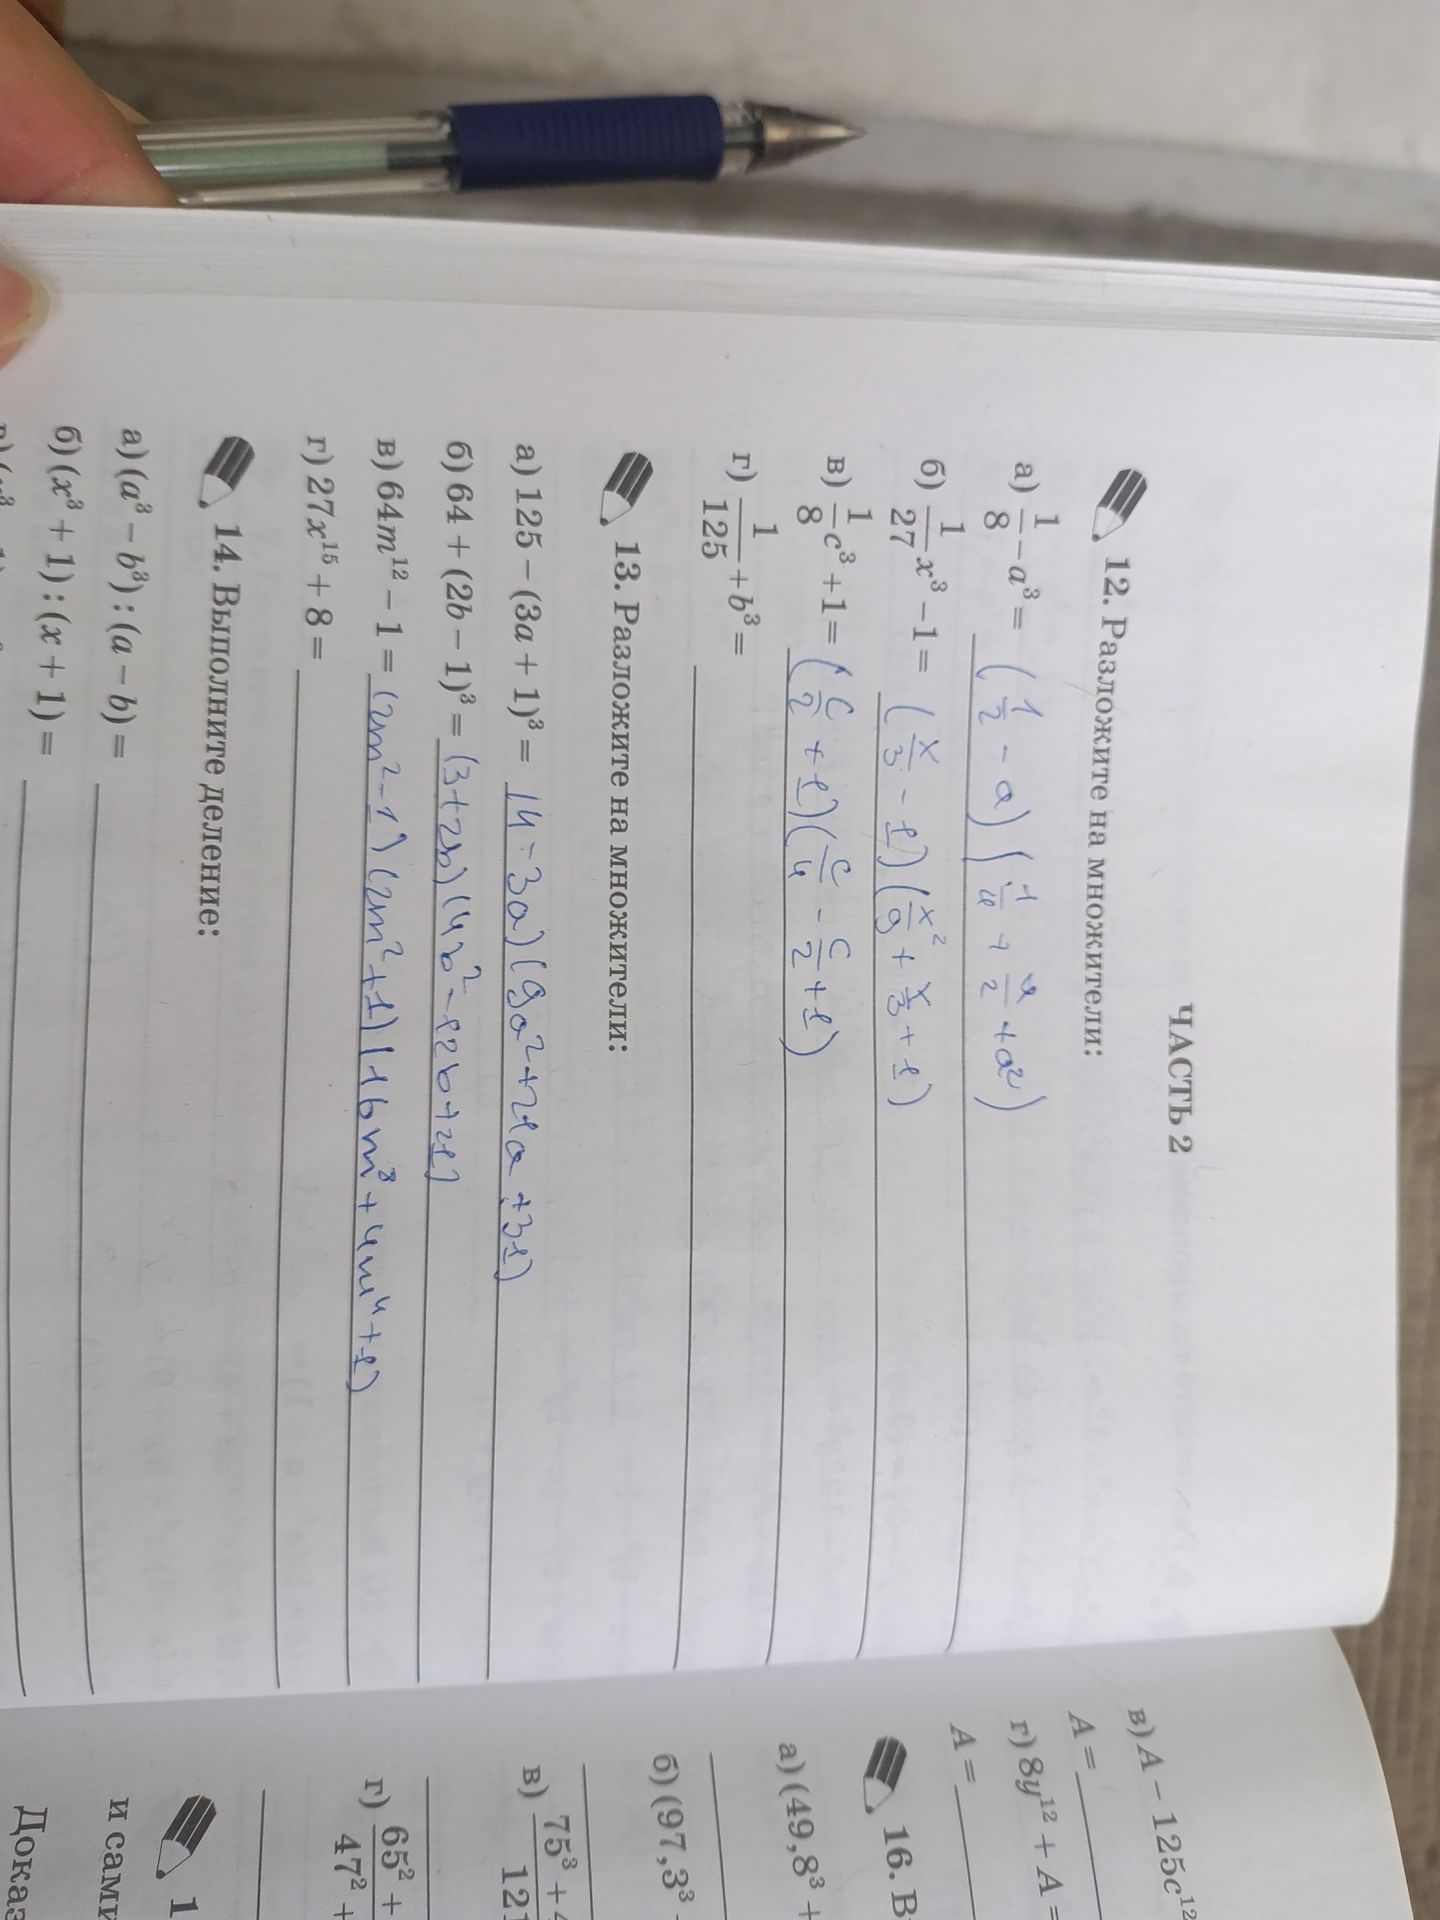 ЧАСТЬ 2
12. Разложите на множители:
а) 1/8 − a³ = (1/2 − a)(1/4 + a/2 + a²)
б) 1/27 x³ − 1 = (x/3 − 1)(x²/9 + x/3 + 1)
в) 1/8 c³ + 1 = (c/2 + 1)(c/4 − c/2 + 1)
г) 1/125 + b³ =
13. Разложите на множители:
а) 125 − (3a + 1)³ = (4 − 3a)(9a² + 21a + 31)
б) 64 + (2b − 1)³ = (3 + 2b)(4b² − 12b + 21)
в) 64m¹² − 1 = (2m² − 1)(2m² + 1)(16m⁸ + 4m⁴ + 1)
г) 27x¹⁵ + 8 =
14. Выполните деление:
а) (a³ − b³) : (a − b) =
б) (x³ + 1) : (x + 1) =
в) A − 125c¹²
A =
г) 8y¹² + A =
A =
16. В
а) (49,8³ +
б) (97,3³
в) 75³ + 4
121
г) 65² +
47² +
1
и сами
Доказ